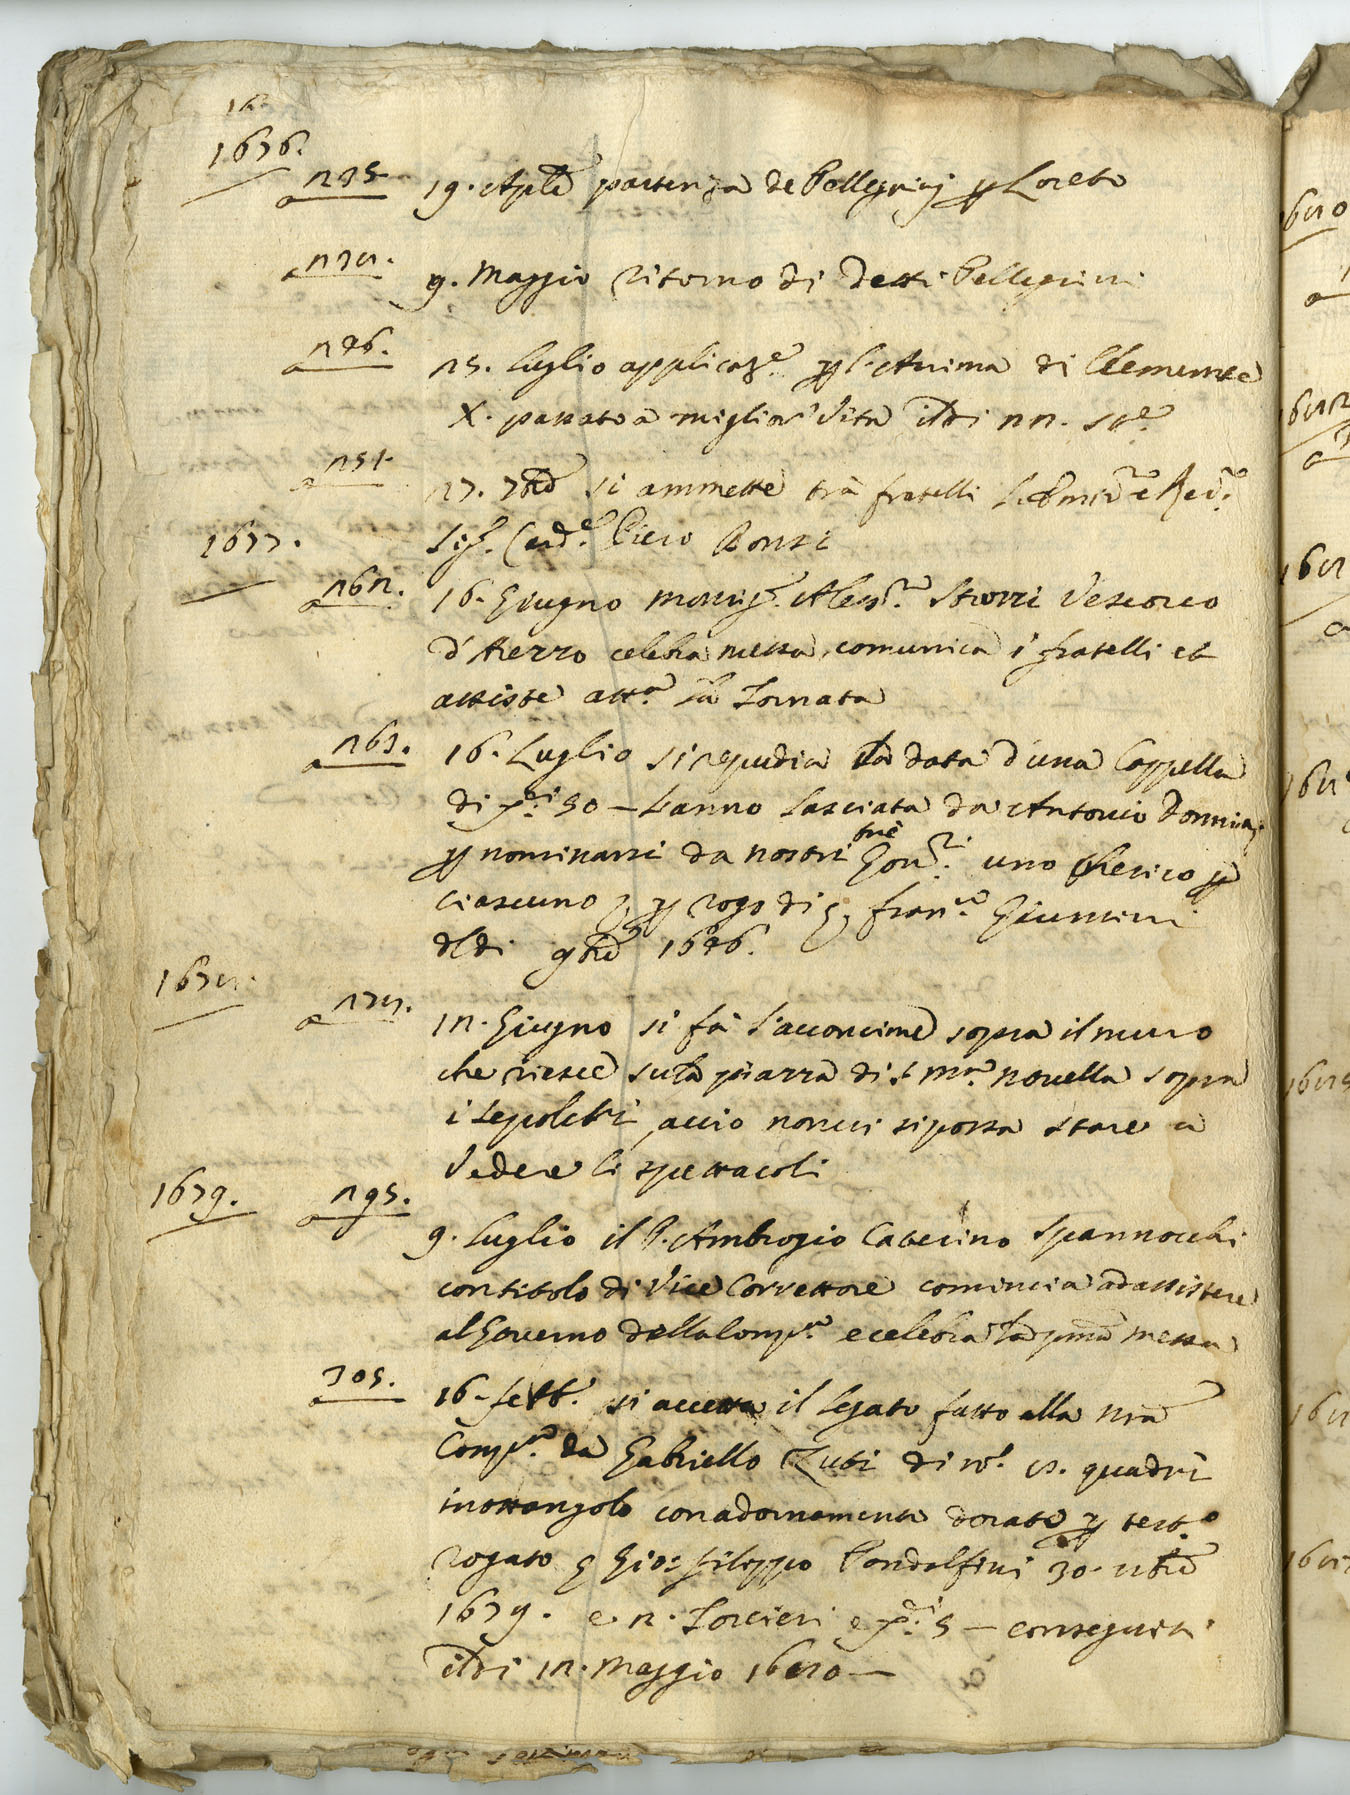 1676.
a 235 19. Aple partenza de Pellegrinj p Loreto
a 238. 9. Maggio ritorno di detti Pellegrini
a 246. 25. Luglio applicaz.e p l'Anima di Clemente
X. passato a miglior vita il dì 22. st.e
a 251. 27. 7bre si ammette trà fratelli l'Emin.mo e Rev.mo
1677. Sig.r Card.e Piero Bonsi
a 262. 16. Giugno Monsig.r Aless.ro Strozzi Vescovo
d'Arezzo celebra messa, comunica i fratelli et
assiste att.a la Tornata
a 263. 16. Luglio si repudia la data d'una Cappella
di [scudi] 50 - l'anno lasciata da Antonio
p nominarsi da nostri trè Gov.ri uno Cherico p
ciascuno, p rogo di S. Fran.co Giuntini
dì di 9bre 1646.
1678.
a 278. 12. Giugno si fà l'acconcime sopra il muro
che riesce su la piazza di S. M.a Novella sopra
i sepolcri, acciò non vi si possa stare a
vedere li spettacoli
1679. a 295. 9. Luglio il P. Ambrogio Caterino Spannocchi
con titolo di Vice Correttore comincia ad assistere
al Governo della Comp.a e celebra la pma messa
305. 16. Sett.e si accetta il legato fatto alla nra
Comp.a da Gabriello Zuti di n.o 8. quadri
in ottangolo con adornamento dorato p test.o
rogato S. Gio: Filippo Pandolfini 30. 8bre
1679. e 2. Torcieri e [scudi] 5 - conseguiti
il dì 12. Maggio 1680 -
1680
1682
168
168
1685
168
168